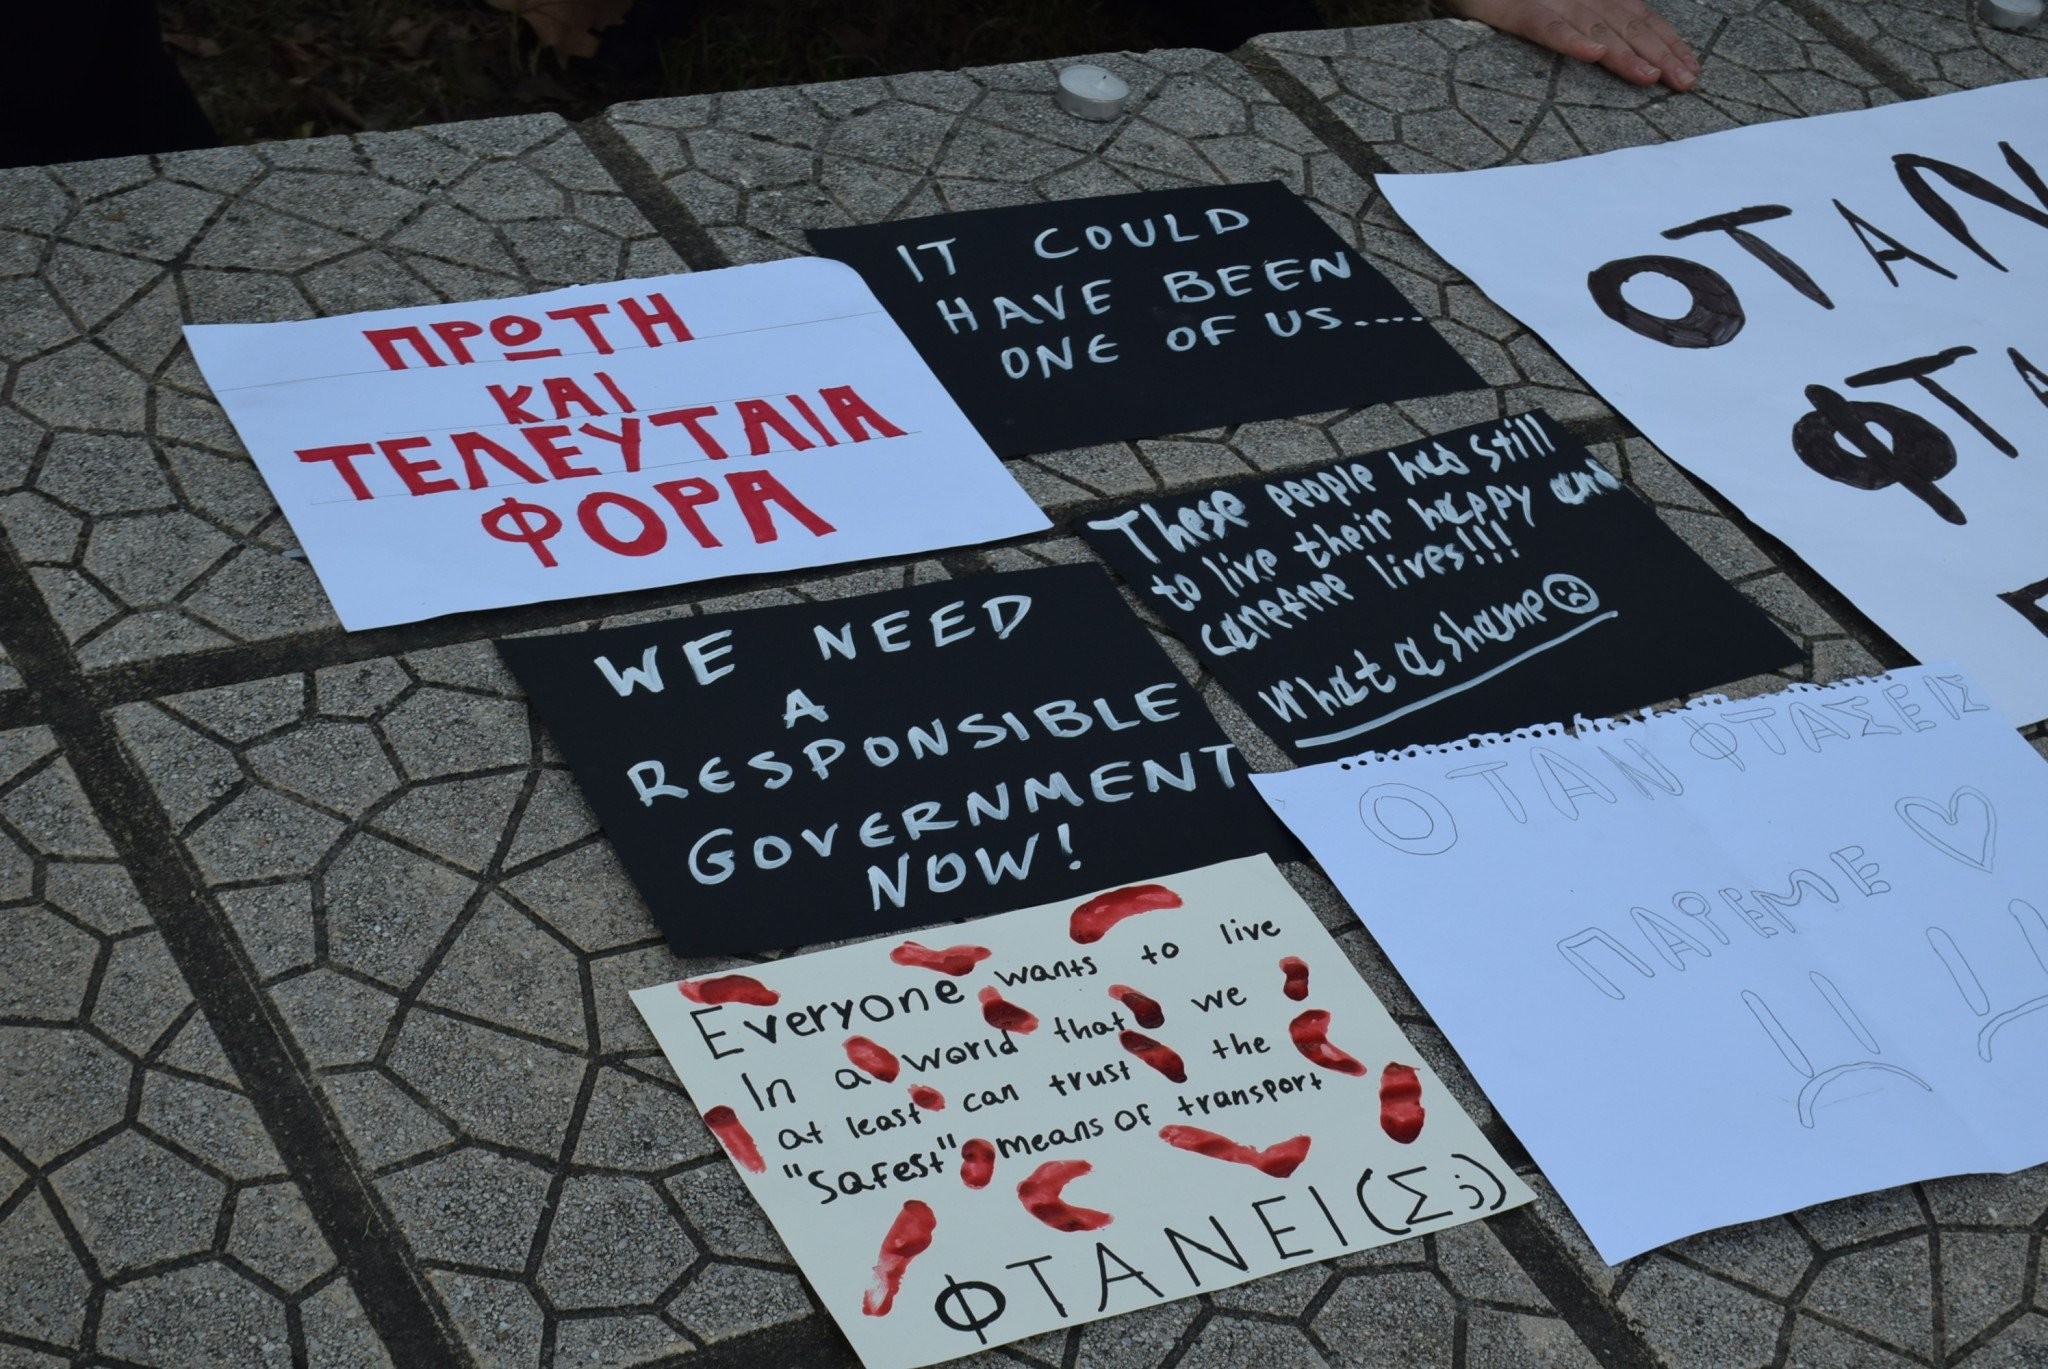 ΠΡΩΤΗ
ΚΑΙ
ΤΕΛΕΥΤΑΙΑ
ΦΟΡΑ
IT COULD
HAVE BEEN
ONE OF US....
ΟΤΑΝ
ΦΤΑ
These people had still
to live their happy and
carefree lives!!!
What a shame
WE NEED
A
RESPONSIBLE
GOVERNMENT
NOW!
ΟΤΑΝ ΦΤΑΣΕΙΣ
ΠΑΡΕ ΜΕ
Everyone wants to live
In a world that we
at least can trust the
"Safest" means of transport
ΦΤΑΝΕΙ(Σ;)